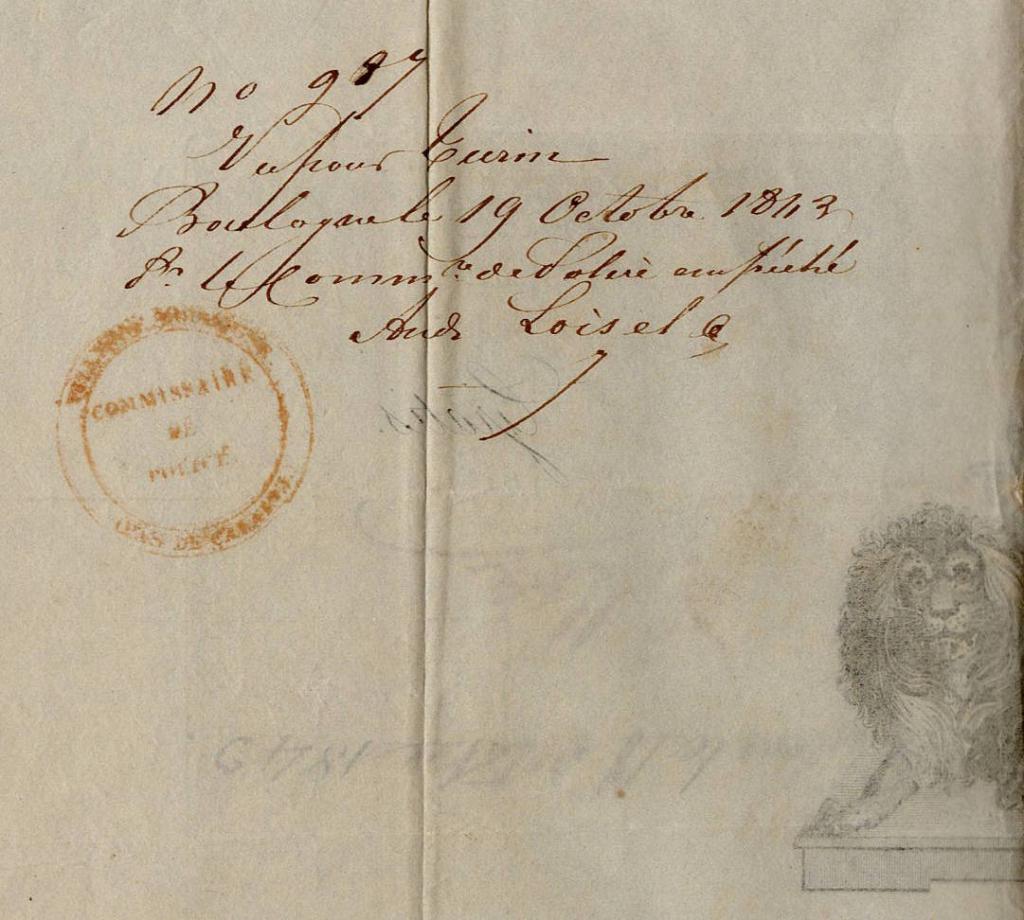 No 987
Vu pour Turin
Boulogne le 19 Octobre 1843
Pr le Commre de Police empêché
Loisel
COMMISSAIRE
DE
POLICE
(PAS DE CALAIS)
Gratis.
1843